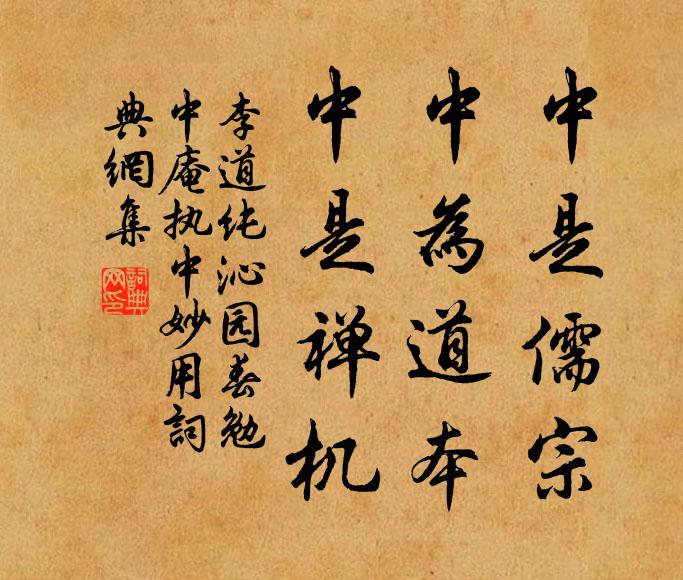 中是儒宗
中為道本
中是禅机
李道纯沁园春勉
中庵执中妙用詞
典網集
詞典網印